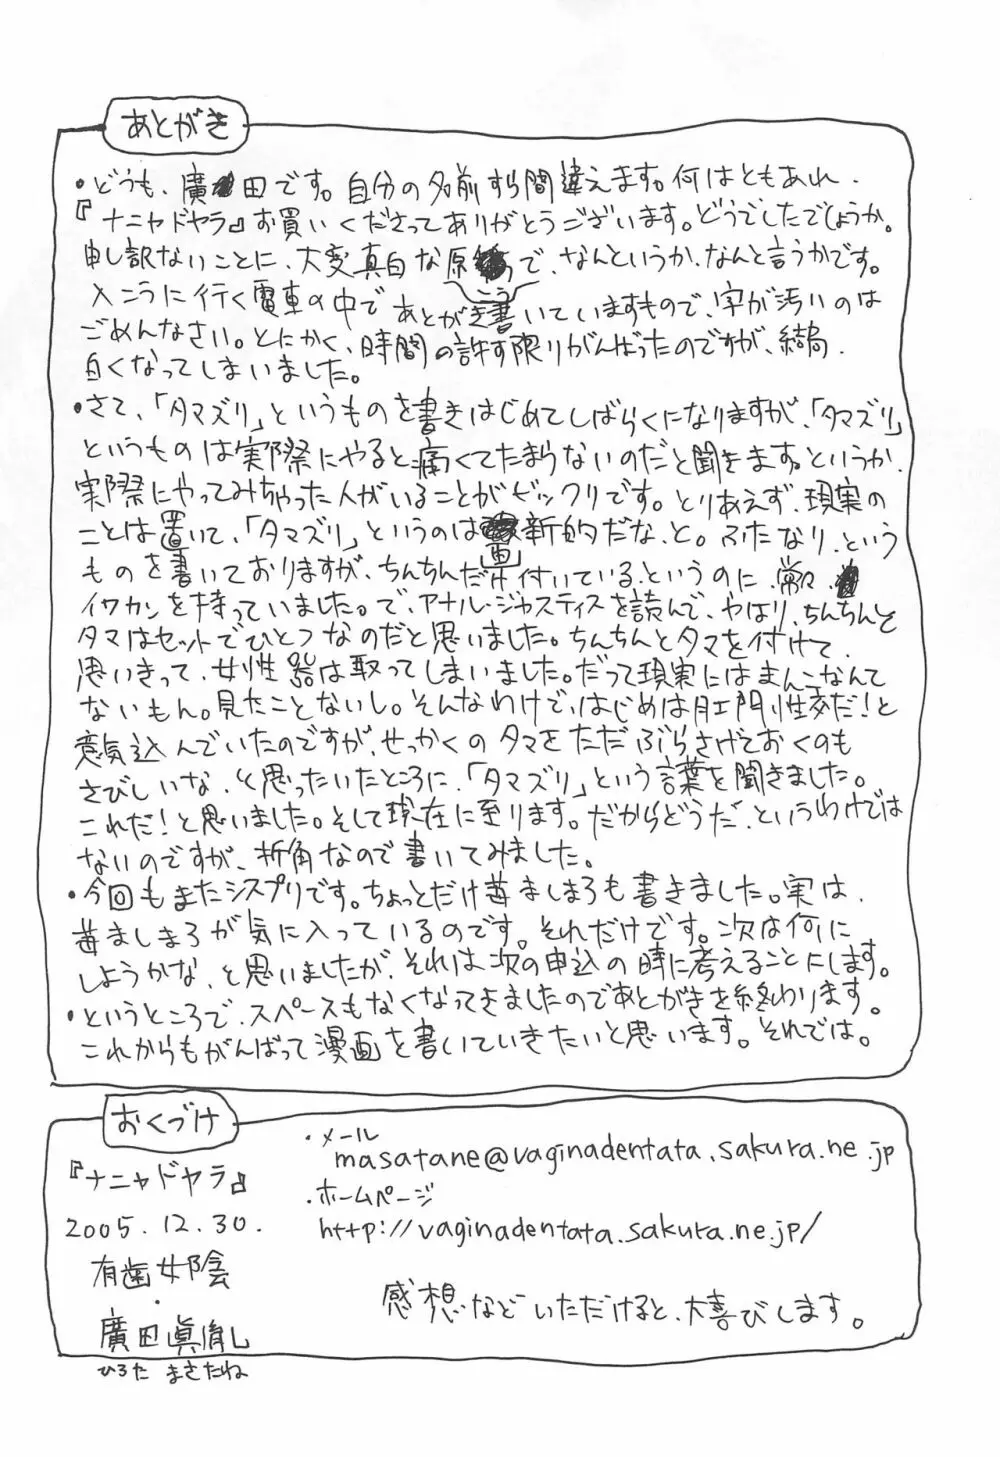 あとがき
・どうも、廣田です。自分の名前すら間違えます。何はともあれ、
『ナニャドヤラ』お買いくださってありがとうございます。どうでしたでしょうか。
申し訳ないことに、大変真白な原こうで、なんというか、なんと言うかです。
入こうに行く電車の中であとがき書いていますもので、字が汚いのは
ごめんなさい。とにかく、時間の許す限りがんばったのですが、結局、
白くなってしまいました。
・さて、「タマズリ」というものを書きはじめてしばらくになりますが、「タマズリ」
というものは実際にやると痛くてたまらないのだと聞きます。というか、
実際にやってみちゃった人がいることがビックリです。とりあえず、現実の
ことは置いて、「タマズリ」というのは画新的だな、と。ふたなり、という
ものを書いておりますが、ちんちんだけ付いている、というのに、常々
イワカンを持っていました。で、アナル・ジャスティスを読んで、やはり、ちんちんと
タマはセットでひとつなのだと思いました。ちんちんとタマを付けて、
思いきって、女性器は取ってしまいました。だって現実にはまんこなんて
ないもん。見たことないし。そんなわけで、はじめは肛門性交だ！と
意気込んでいたのですが、せっかくのタマをただぶらさげておくのも
さびしいな、と思ったいたところに、「タマズリ」という言葉を聞きました。
これだ！と思いました。そして現在に至ります。だからどうだ、というわけでは
ないのですが、折角なので書いてみました。
・今回もまたシスプリです。ちょっとだけ苺ましまろも書きました。実は、
苺ましまろが気に入っているのです。それだけです。次は何に
しようかな、と思いましたが、それは次の申込の時に考えることにします。
・というところで、スペースもなくなってきましたのであとがきを終わります。
これからもがんばって漫画を書いていきたいと思います。それでは。
おくづけ
『ナニャドヤラ』
2005.12.30.
有歯女陰
・
廣田眞胤
ひろた まさたね
・メール
masatane@vaginadentata.sakura.ne.jp
・ホームページ
http://vaginadentata.sakura.ne.jp/
感想などいただけると、大喜びします。